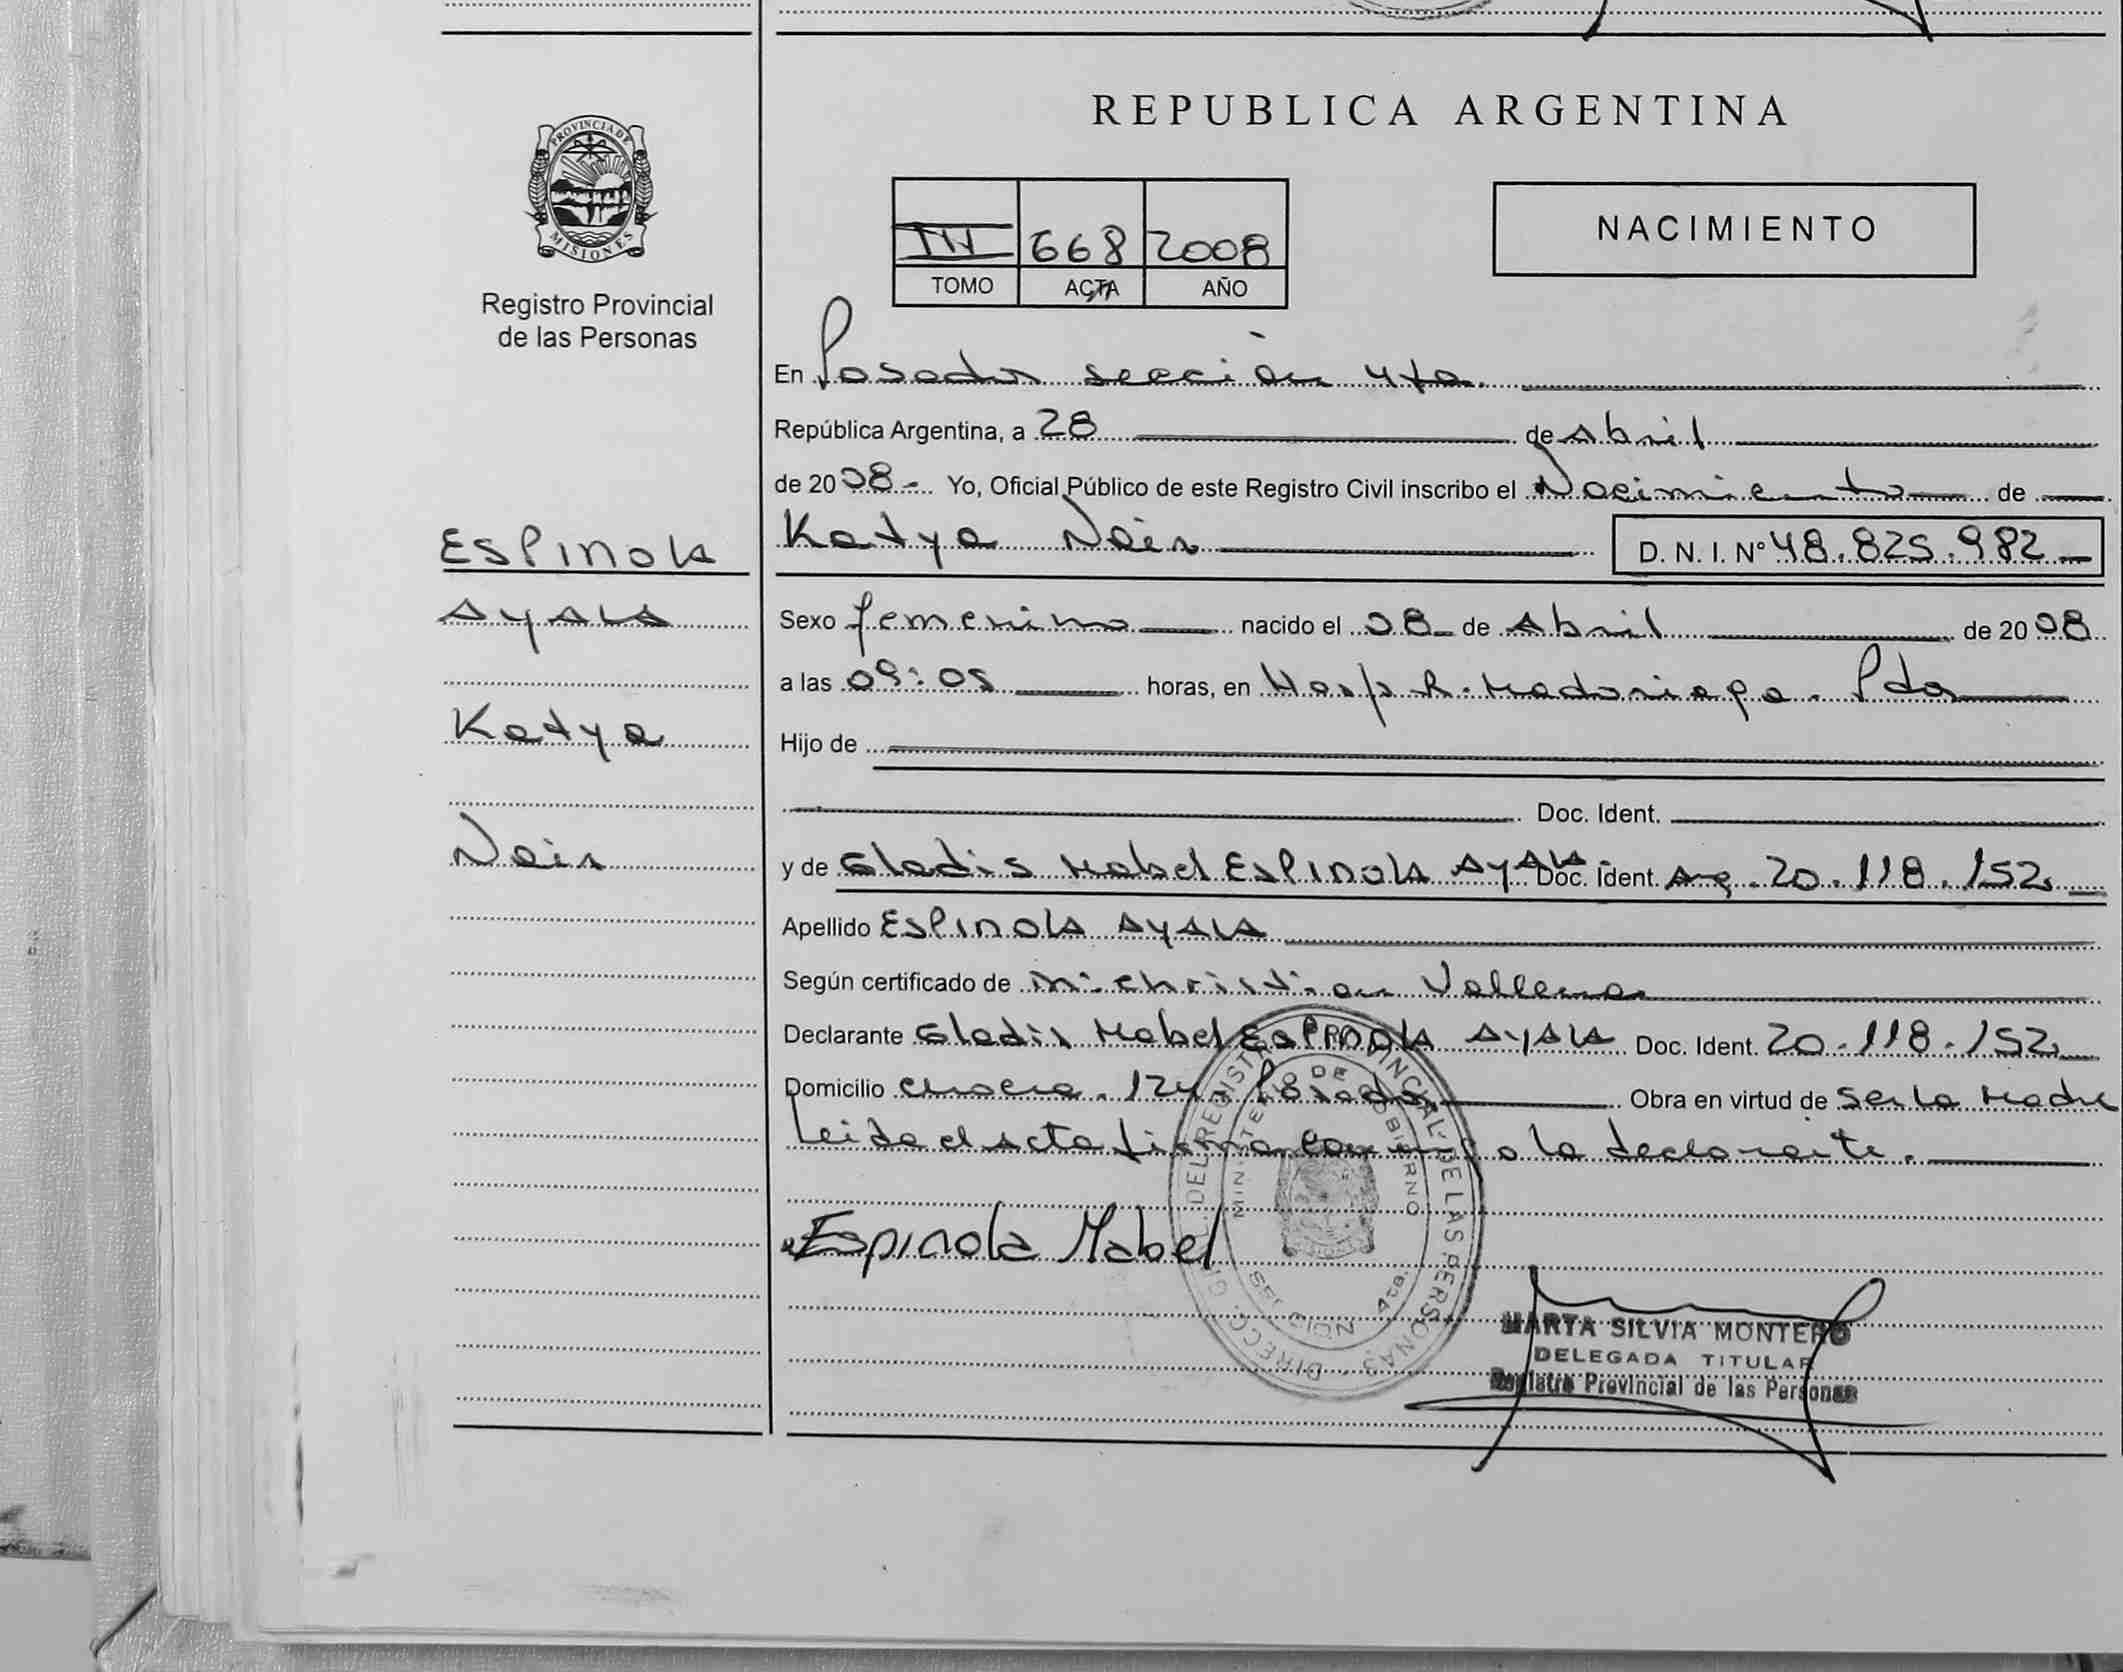 REPUBLICA ARGENTINA
PROVINCIA DE
MISIONES
Registro Provincial
de las Personas
III 668 2008
TOMO ACTA AÑO
NACIMIENTO
En Posadas sección 4ta.
República Argentina, a 28 de Abril
de 2008- Yo, Oficial Público de este Registro Civil inscribo el Nacimiento de
Katya Nair D. N. I. Nº 48.825.982
ESPINOLA
AYALA
Katya
Nair
Sexo femenino nacido el 08 de Abril de 2008
a las 09:05 horas, en Hosp R. Madariaga. Pdas
Hijo de
Doc. Ident.
y de Gladis Mabel ESPINOLA AYALA Doc. Ident. Arg. 20.118.152
Apellido ESPINOLA AYALA
Según certificado de Christian
Declarante Gladis Mabel ESPINOLA AYALA Doc. Ident. 20.118.152
Domicilio Posadas Obra en virtud de ser la Madre
Leida el acta firma conmigo la declarante.
Espinola Mabel
DIRECC. GRAL. DEL REGISTRO PROVINCIAL DE LAS PERSONAS
MINISTERIO DE GOBIERNO
SECCION 4ta.
MARTA SILVIA MONTERO
DELEGADA TITULAR
Registro Provincial de las Personas